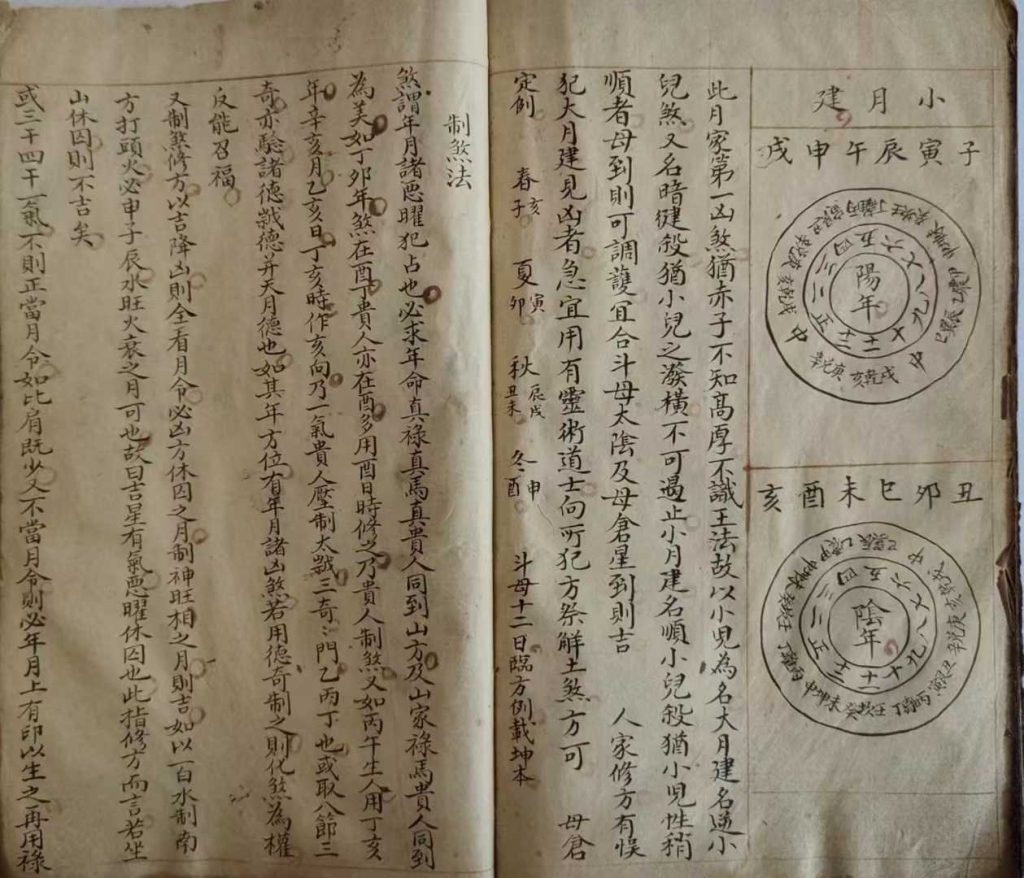 小月建
子寅辰午申戌
陽年
正二三四五六七八九十十一十二
丑卯巳未酉亥
陰年
正二三四五六七八九十十一十二
此月家第一凶煞猶赤子不知高厚不識王法故以小兒為名大月建名逆小
兒煞又名暗建殺猶小兒之潑橫不可遏止小月建名順小兒殺猶小兒性稍
順者母到則可調護宜合斗母太陰及母倉星到則吉 人家修方有悞
犯大月建見凶者急宜用有靈術道士向所犯方祭解土煞方可 母倉
定例 春亥子 夏寅卯 秋辰戌丑未 冬申酉 斗母十二日臨方例載坤本
制煞法
煞謂年月諸惡曜犯占也必求年命真祿真馬真貴人同到山方及山家祿馬貴人同到
為美如丁卯年煞在酉丁貴人亦在酉多用酉日時修之乃貴人制煞又如丙午生人用丁亥
年辛亥月乙亥日丁亥時作亥向乃一氣貴人壓制太歲三奇門乙丙丁也或取八節三
奇亦驗諸德歲德并天月德也如其年方位有年月諸凶煞若用德奇制之則化煞為權
反能召福
又制煞修方以吉降凶則全看月令必凶方休囚之月制神旺相之月則吉如以一白水制南
方打頭火必申子辰水旺火衰之月可也故曰吉星有氣惡曜休囚也此指修方而言若坐
山休囚則不吉矣
或三干四干一氣不則正當月令如比肩既少又不當月令則必年月上有印以生之再用祿